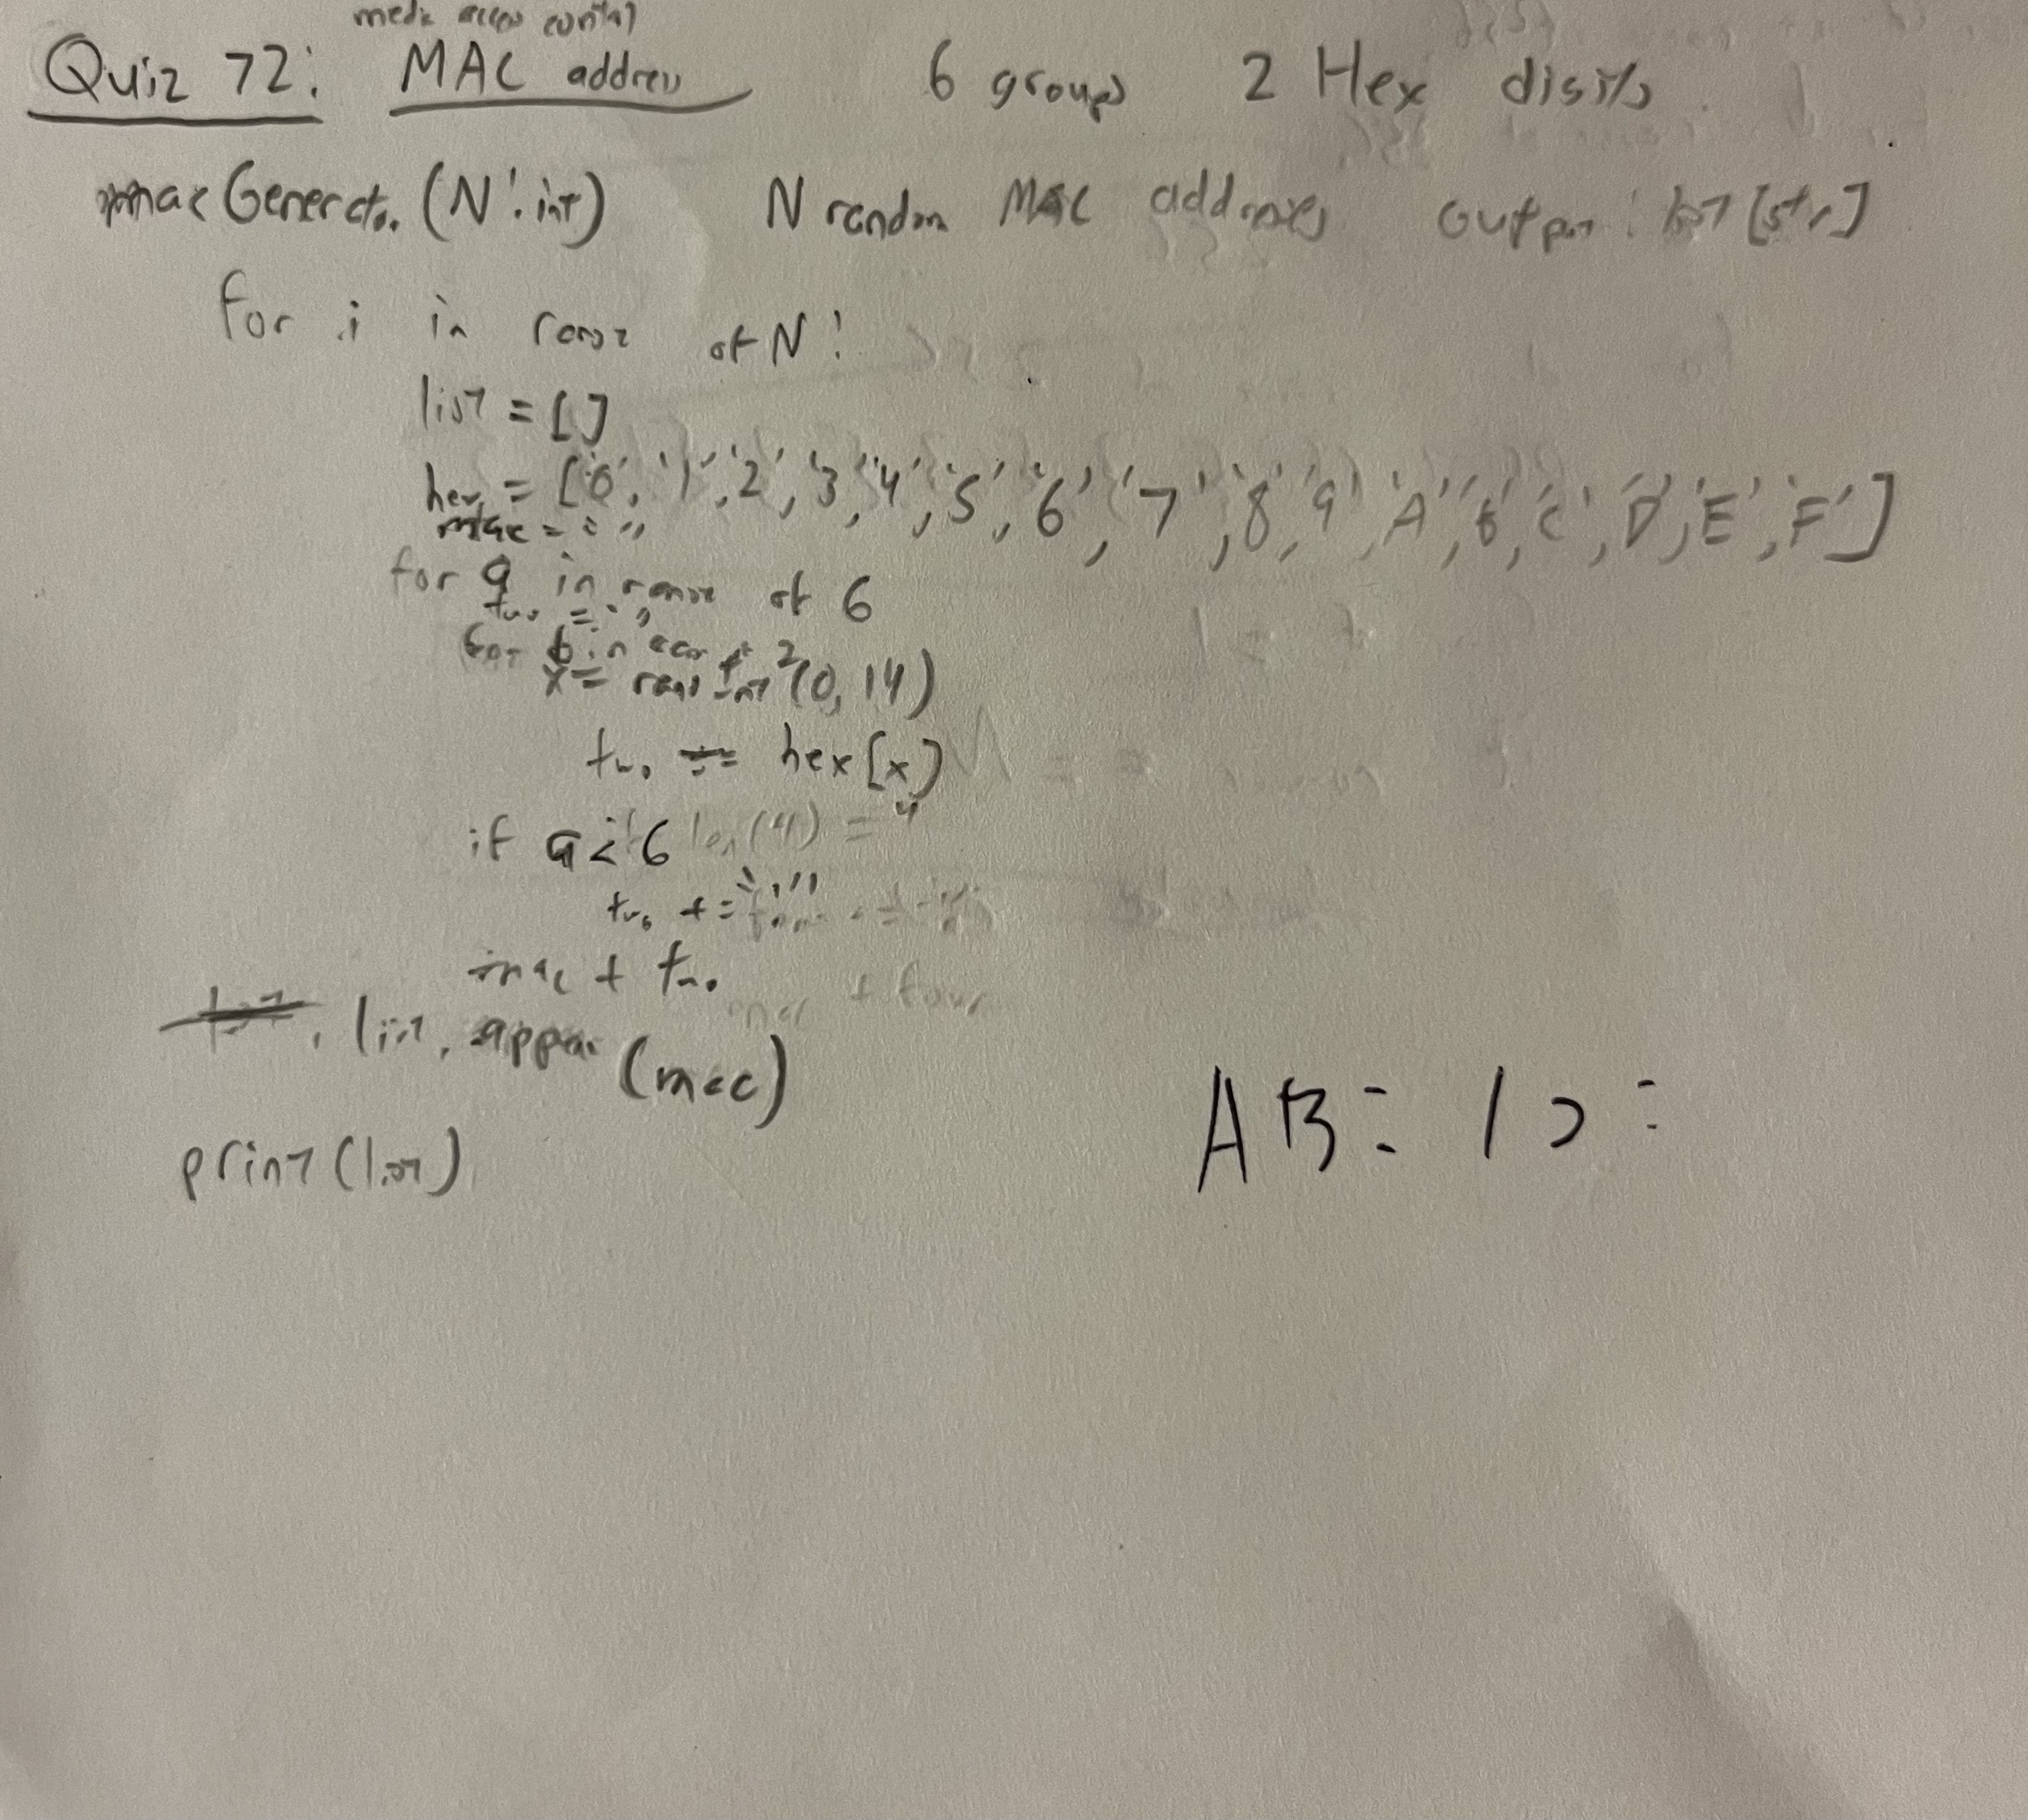 media access control
Quiz 72: MAC address 6 groups 2 Hex digits
macGenerator (N: int) N random MAC addresses output: list [str]
for i in range of N:
list = []
hex = ['0', '1', '2', '3', '4', '5', '6', '7', '8', '9', 'A', 'B', 'C', 'D', 'E', 'F']
mac = ''
for a in range of 6
two = ''
for b in range of 2
x = randint (0, 14)
two += hex[x]
if a < 6 len(4) = 4
two += ":"
mac + two
mac + four
list. appen (mac)
print (list)
AB: 12: